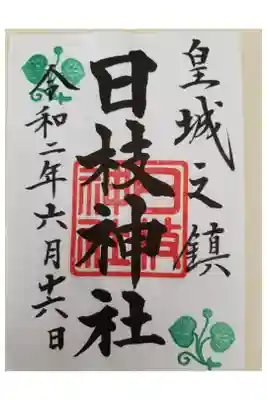 皇城之鎮
日枝神社
令和二年六月十六日
日枝神社